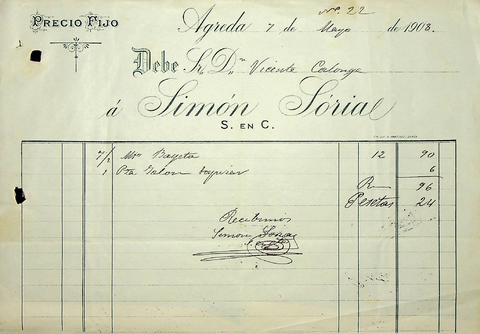 Nº 22
PRECIO FIJO
Agreda 7 de Mayo de 1908.
Debe Sr. Dn. Vicente Calonge
á Simón Sória
S. EN C.
7/2 Mts Bayeta 12 90
1 Pza Galon 6
R 96
Pesetas 24
Recibimos
Simon Soria